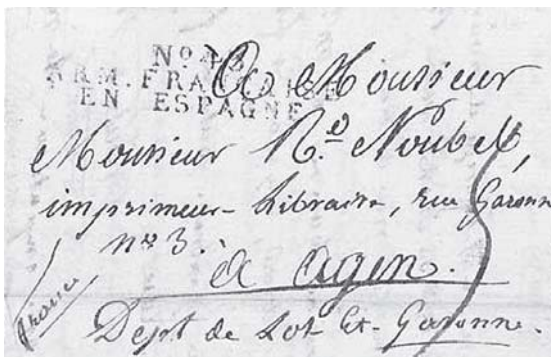 No 43
ARM. FRANÇAISE
EN ESPAGNE
A Monsieur
Monsieur Rd. Noubel,
imprimeur-Libraire, rue Garonne
no 3.
à agen.
Dept de Lot Et-Garonne.
france